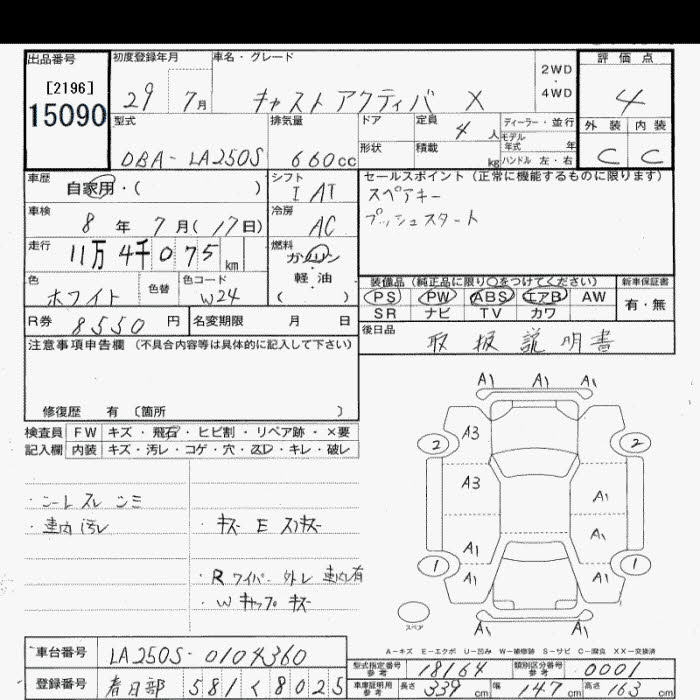 出品番号 初度登録年月 車名・グレード 2WD・4WD 評価点
[2196]
15090
29 7月 キャスト アクティバ X 4
型式 排気量 ドア 定員 4人 ディーラー・並行 外装 内装
DBA-LA250S 660cc 形状 積載 kg モデル年式 年 ハンドル 左・右 C C
車歴 自家用・( ) シフト I AT セールスポイント (正常に機能するものに限ります)
スペアキー
プッシュスタート
車検 8年 7月(17日) 冷房 AC
走行 11万4千075km 燃料 ガソリン・軽油 ( )
色 ホワイト 色替 色コード W24
装備品 (純正品に限り○をつけてください) 新車保証書
PS PW ABS エアB AW 有・無
SR ナビ TV カワ
R券 8550円 名変期限 月 日
後日品 取扱説明書
注意事項申告欄 (不具合内容等は具体的に記入して下さい)
修復歴 有 〔箇所 〕
検査員 FW キズ・飛石・ヒビ割・リペア跡・×要
記入欄 内装 キズ・汚レ・コゲ・穴・スレ・キレ・破レ
・シートスレ シミ
・車内汚レ ・キズ E スリキズ
・R ワイパー 外レ 車内有
・W キャップ キズ
A1 A1 A1
2 A3 2
A3 A1
A1 A1
1 A1 A1 1
A1 A1
スペア
A-キズ E-エクボ U-凹み W-補修跡 S-サビ C-腐食 XX-交換済
車台番号 LA250S-0104360
登録番号 春日部 581 く 8025
型式指定番号 参考 18164 類別区分番号 参考 0001
車庫証明用 参考 長さ 339cm 幅 147cm 高さ 163cm